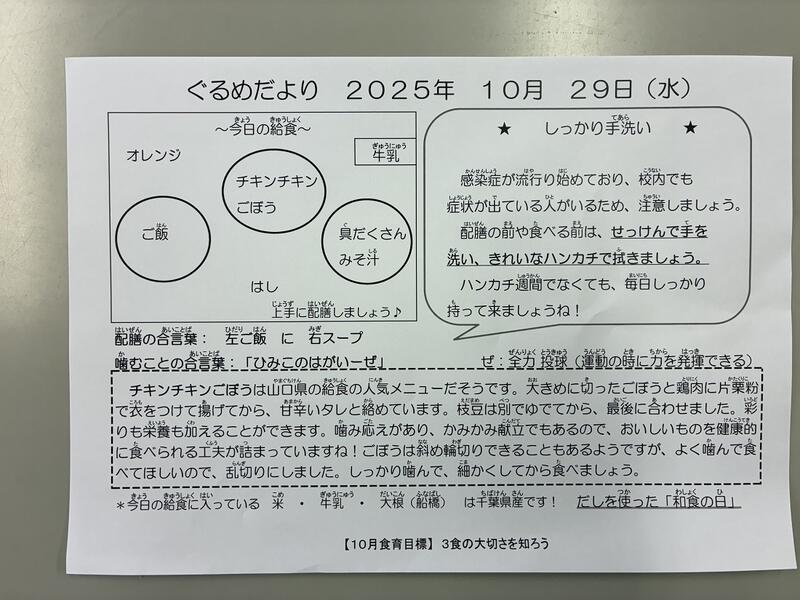 ぐるめだより　２０２５年　１０月　２９日（水）
～今日の給食～
オレンジ
牛乳
チキンチキン
ごぼう
ご飯
具だくさん
みそ汁
はし
上手に配膳しましょう♪
★　しっかり手洗い　★
感染症が流行り始めており、校内でも
症状が出ている人がいるため、注意しましょう。
配膳の前や食べる前は、せっけんで手を
洗い、きれいなハンカチで拭きましょう。
ハンカチ週間でなくても、毎日しっかり
持って来ましょうね！
配膳の合言葉：　左ご飯　に　右スープ
噛むことの合言葉：「ひみこのはがいーぜ」　ぜ：全力投球（運動の時に力を発揮できる）
チキンチキンごぼうは山口県の給食の人気メニューだそうです。大きめに切ったごぼうと鶏肉に片栗粉
で衣をつけて揚げてから、甘辛いタレと絡めています。枝豆は別でゆでてから、最後に合わせました。彩
りも栄養も加えることができます。噛み応えがあり、かみかみ献立でもあるので、おいしいものを健康的
に食べられる工夫が詰まっていますね！ごぼうは斜め輪切りできることもあるようですが、よく噛んで食
べてほしいので、乱切りにしました。しっかり噛んで、細かくしてから食べましょう。
＊今日の給食に入っている　米　・　牛乳　・　大根（船橋）　は千葉県産です！　だしを使った「和食の日」
【１０月食育目標】３食の大切さを知ろう